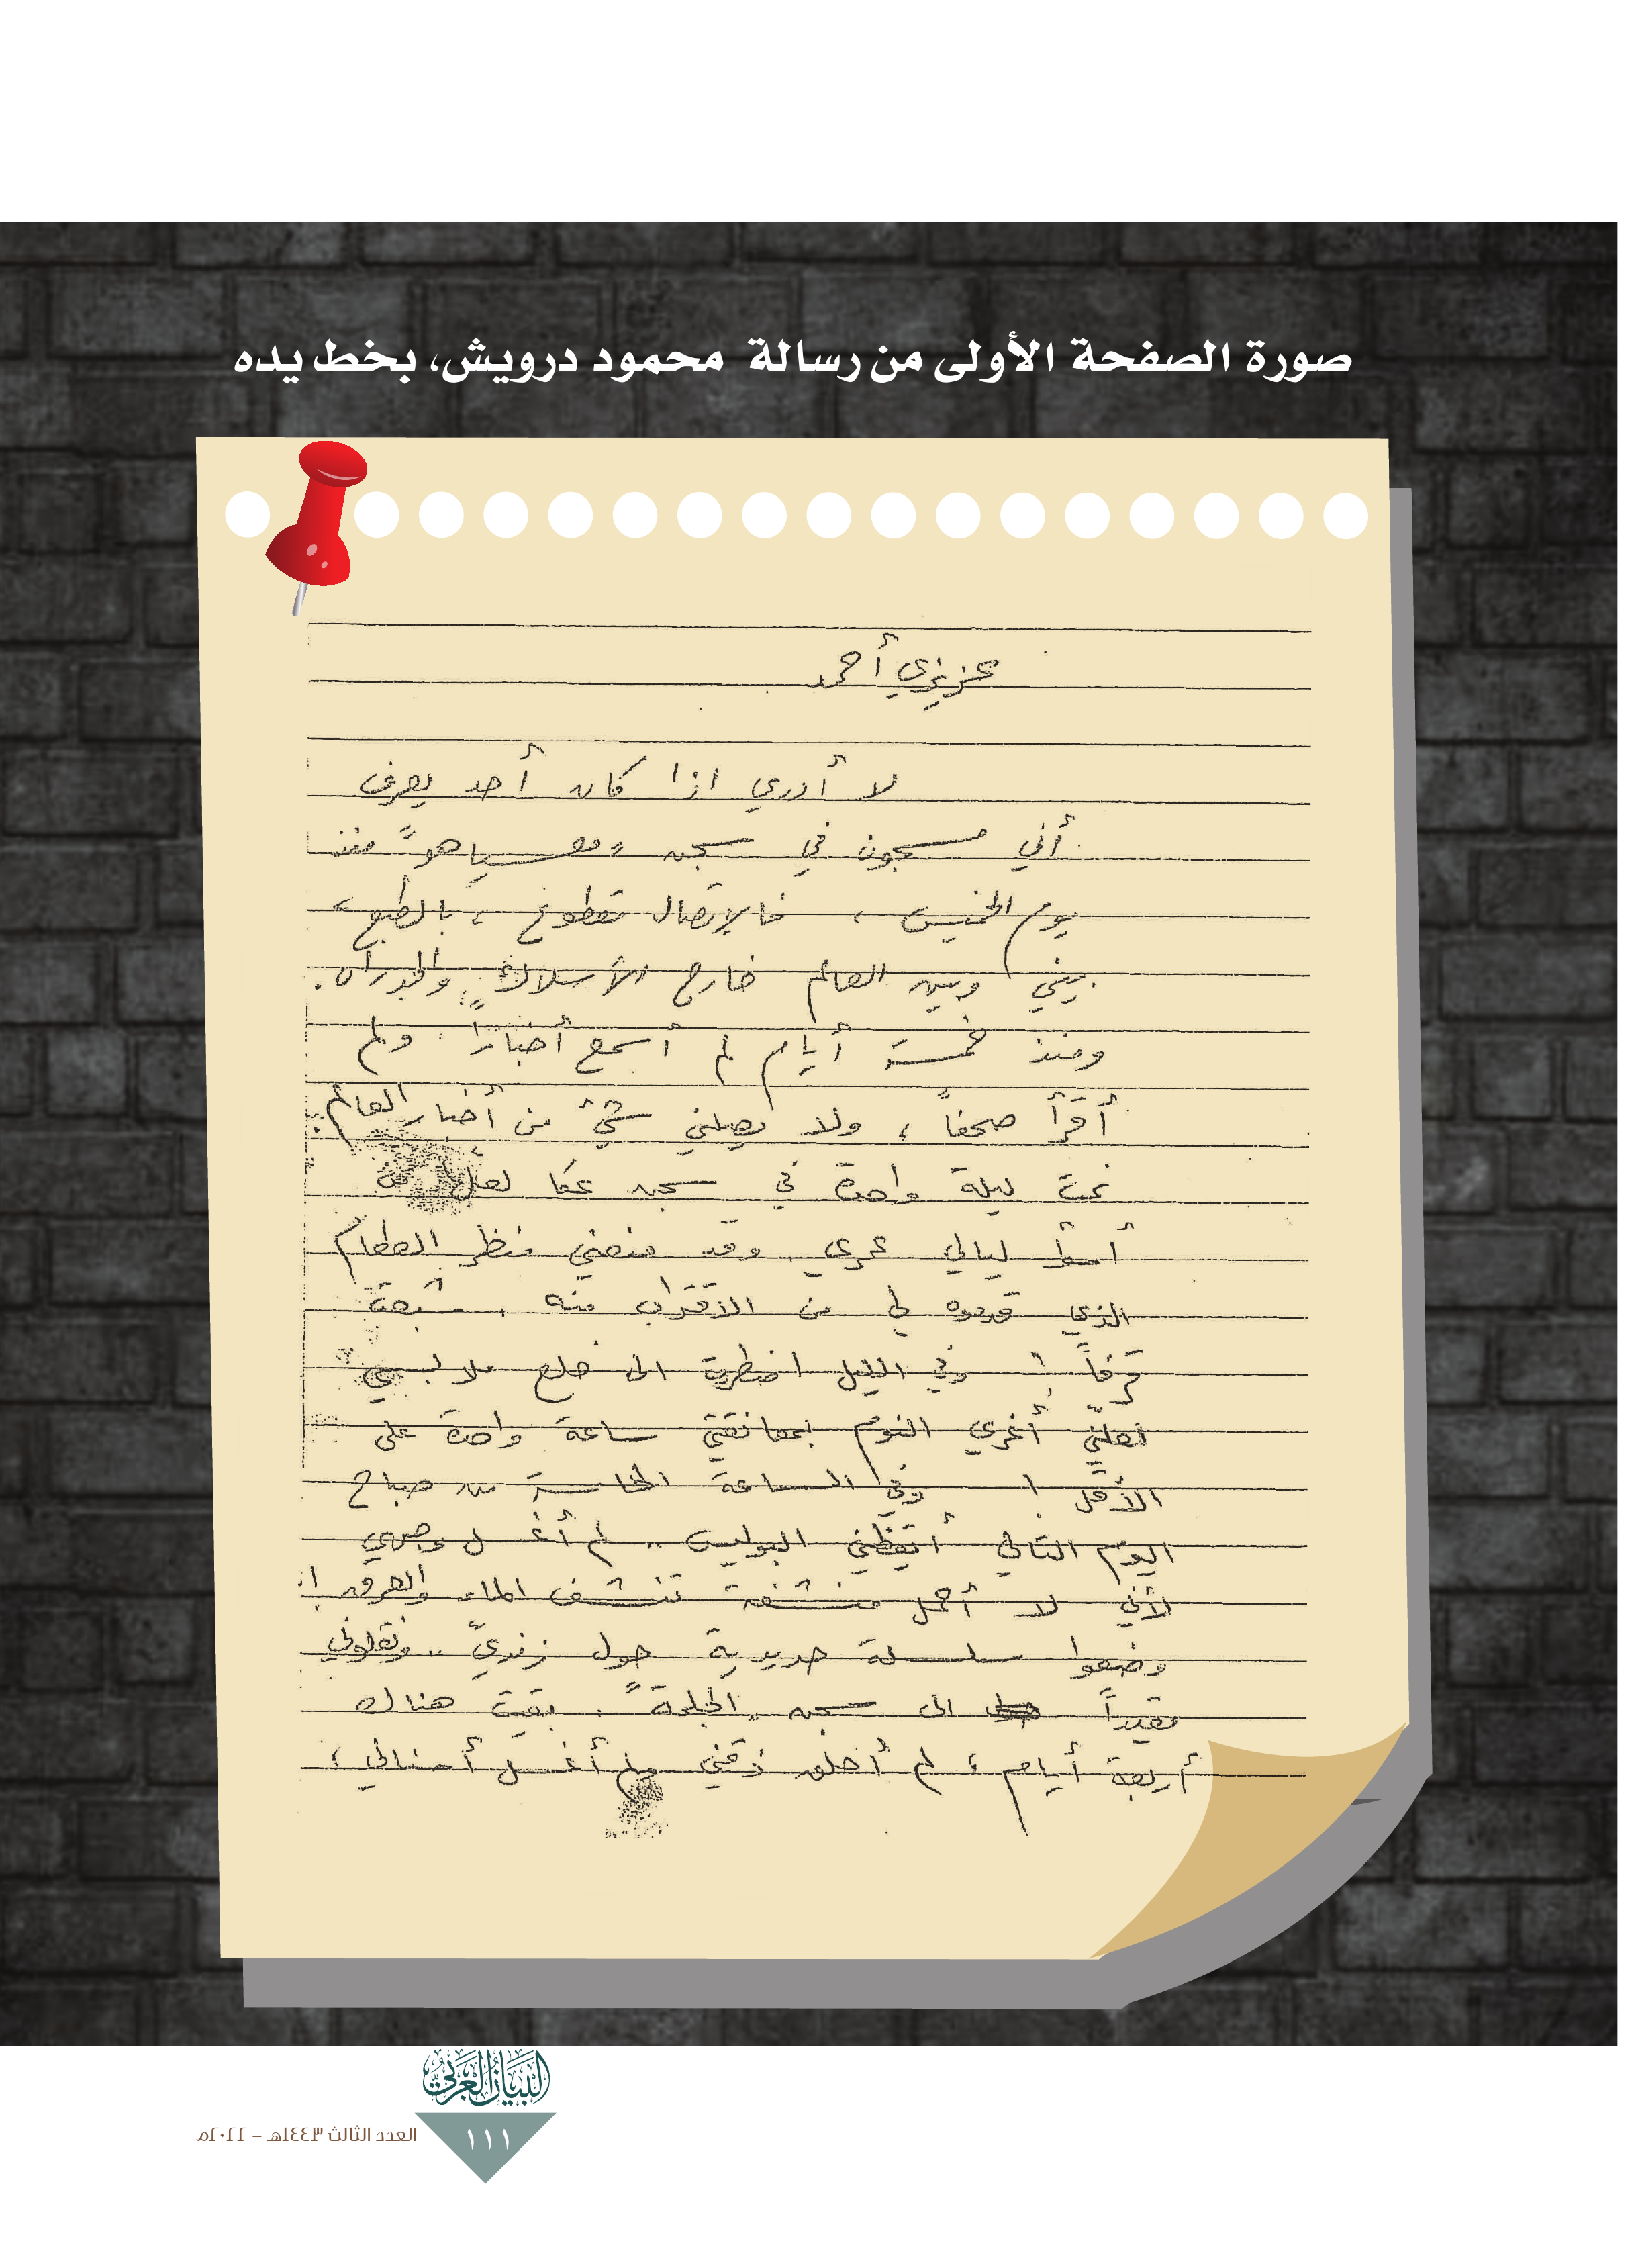 صورة الصفحة الأولى من رسالة محمود درويش، بخط يده
عزيزي أحمد
لا أدري اذا كان أحد يعرف
أني مسجون في سجن "معسياهو" منذ
يوم الخميس ، فالإتصال مقطوع ، بالطبع ،
بيني وبين العالم خارج الأسلاك والجدران .
ومنذ خمسة أيام لم أسمع أخباراً ولم
أقرأ صحفاً ، ولا يصلني شيء من أخبار العالم .
نمت ليلة واحدة في سجن عكا لعلها من
أسوأ ليالي عمري وقد منعني منظر الطعام
الذي قدموه لي من الاقتراب منه . شبعت
قرفاً ! وفي الليل اضطررت الى خلع ملابسي
لعلّني أغري النوم بمعانقتي ساعة واحدة على
الأقل ! وفي الساعة الخامسة من صباح
اليوم التالي أيقظني البوليس .. لم أغسل وجهي
لأني لا أحمل منشفة تنشف الماء والعرق !
وضعوا سلسلة حديدية حول زنديّ .. ونقلوني
مقيداً الى سجن "الجلمة" . بقيت هناك
أربعة أيام ، لم أحلق ذقني ولم أغسل أسناني ،
البيان العربي
١١١
العدد الثالث ١٤٤٣هـ – ٢٠٢٢م